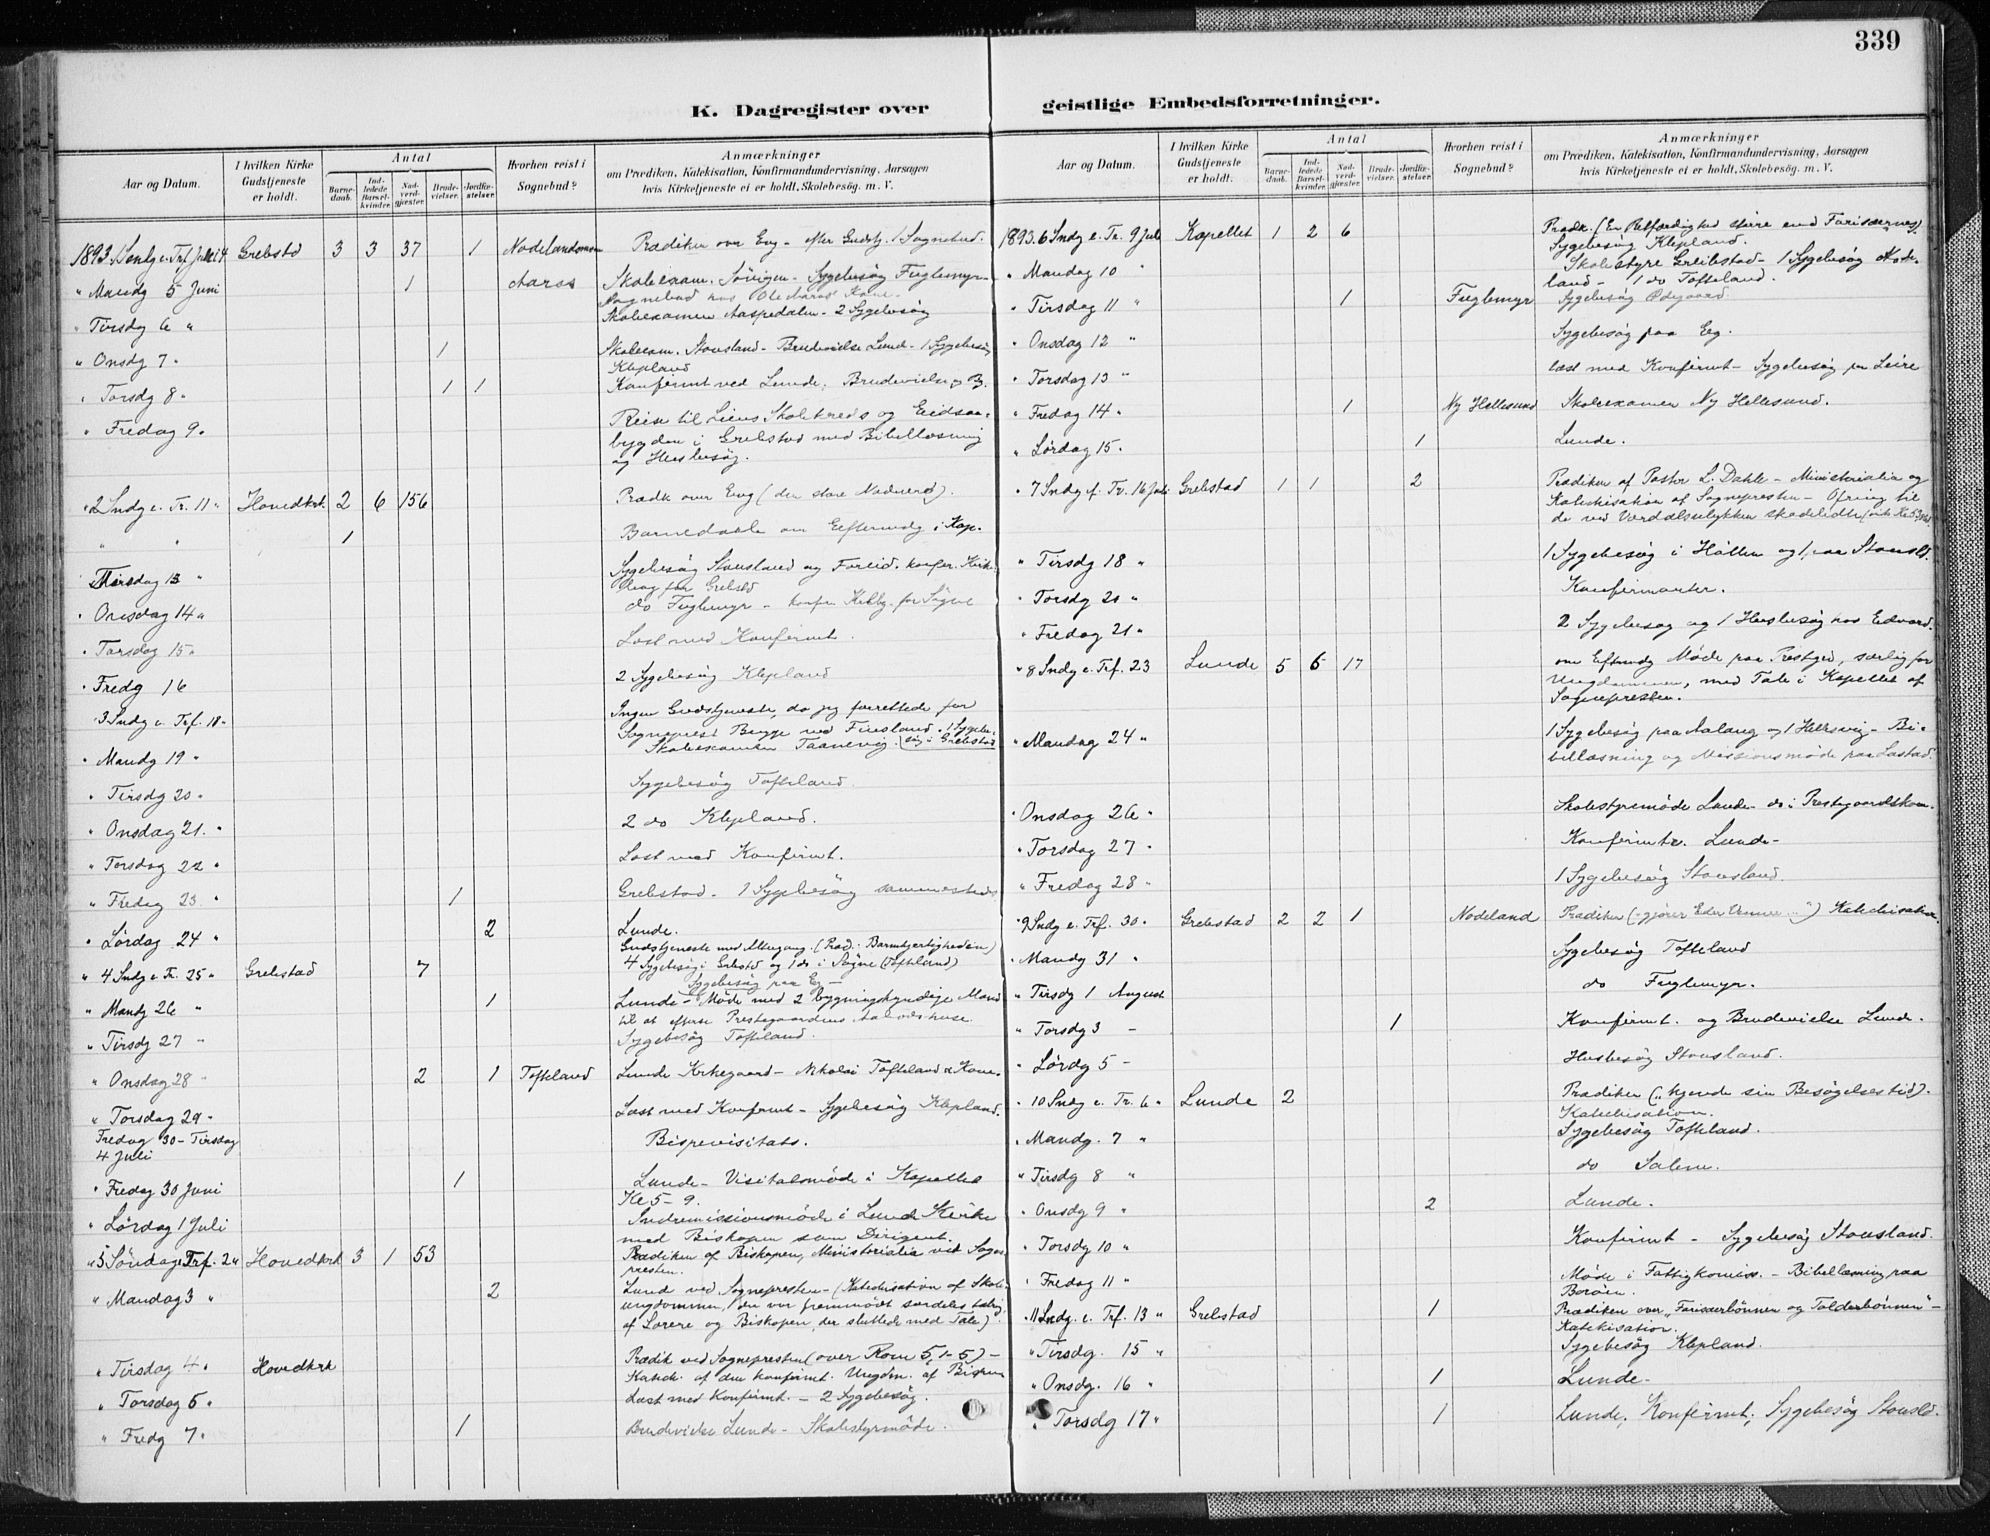 339
K. Dagregister over
geistlige Embedsforretninger.
Aar og Datum.
I hvilken Kirke Gudstjeneste er holdt.
Antal
Barnedaab.
Indledede Barselkvinder.
Nadverdgjæster.
Brudevielser.
Jordfæstelser.
Hvorhen reist i Sognebud?
Anmærkninger
om Prædiken, Katekisation, Konfirmandundervisning, Aarsagen
hvis Kirketjeneste ei er holdt, Skolebesög m. V.
1893. Juni 4 Grebstd 3 3 37 1 Prædiken over Evg - efter Gudstj. 1 Sognebud.
" Mandg 5 Juni 1 Aaros Skolexam. Sygebesög Fuglemyr
Sognebud hos Ole Aaros' Kone.
" Tirsdg 6 " Skolexamen Aaspedalen - 2 Sygebesög
" Onsdg 7 " 1 Skolexam. Stousland - Brudevielse Lund - 1 Sygebesög
Klepland
" Torsdg 8 " 1 1 Konfirmt ved Lunde, Brudevielse
" Fredag 9 " Reise til Liens Skolekreds og
bygden i Grebstad med Bibellæsning
og Husbesög.
" 2 Sndg e. Tr. 11 " Hovedkrk. 2 6 156 Prædk over Evg (den store Nadverd).
" " 1 Barnedaab om Eftermidg i Kap.
" Tirsdag 13 " Sygebesög Stousland og
Grebstd
" Onsdag 14 " do Fuglemyr - for Sögne
" Torsdag 15 " Læst med Konfirmt.
" Fredg 16 2 Sygebesög Klepland
" 3 Sndg e. Trf. 18 " Ingen Gudstjeneste, da jeg forrettede for
Sogneprest Bugge ved Finsland. 1 Sygebesög i Grebstad
" Mandg 19 " Skolexamen Taanevig.
" Tirsdg 20 " Sygebesög Tofteland.
" Onsdag 21 " 2 do Klepland.
" Torsdag 22 " Læst med Konfirmt.
" Fredag 23 " 1 Grebstad - 1 Sygebesög sammesteds
" Lördag 24 " 2 Lunde.
" 4 Sndg e. Tr. 25 " Grebstad 7 Gudstjeneste med Altergang. (Præd.: Barmhjertigheden)
4 Sygebesög i Grebstd og 1 do i Sögne (Tofteland)
Sygebesög paa Eg -
" Mandg 26 " 1 Lunde - Möde med 2 bygningskyndige Mænd
til at efterse Prestegaardens huse.
" Tirsdg 27 " Sygebesög Tofteland.
" Onsdag 28 " 2 1 Tofteland Lunde Kirkegaard - Nikolai Tofteland & Kone
" Torsdag 29 " Læst med Konfirmt - Sygebesög Klepland.
Fredag 30 - Tirsdag
4 Juli Bispevisitats.
" Fredag 30 Juni 1 Lunde - Visitatsmöde i Kapellet
Kl 5 - 9.
" Lördag 1 Juli Indremissionsmöde i Lunde Kirke
med Biskopen som Dirigent.
" 5 Söndag e. Trf. 2 " Hovedkrk 3 1 53 Prædiken af Biskopen, Ministerialia ved Sogne-
presten.
" Mandag 3 " 2 Lund ved Sognepresten - (Katechisation af Skole-
ungdommen, der var fremmödt særdeles talrig
af Lærere og Biskopen, der sluttede med Tale).
" Tirsdag 4 " Hovedkrk Prædik ved Sognepresten (over Rom 5, 1-5) -
Katek. af den konfirmt. Ungdm. af Biskopen
" Torsdag 6 " Læst med Konfirmt. - 2 Sygebesög.
" Fredg 7 " 1 Brudevielse Lunde - Skolestyrmöde.
Aar og Datum.
I hvilken Kirke Gudstjeneste er holdt.
Antal
Barnedaab.
Indledede Barselkvinder.
Nadverdgjæster.
Brudevielser.
Jordfæstelser.
Hvorhen reist i Sognebud?
Anmærkninger
om Prædiken, Katekisation, Konfirmandundervisning, Aarsagen
hvis Kirketjeneste ei er holdt, Skolebesög m. V.
1893. 6 Sndg e. Tr. 9 Juli Kapellet 1 2 6 Prædk. (En Retfærdighed större end Farisæernes)
Sygebesög Klepland.
" Mandag 10 " Skolestyre Greibstad - 1 Sygebesög Node-
land - 1 do Tofteland.
" Tirsdg 11 " 1 Fuglemyr Sygebesög Ödegaard
" Onsdag 12 " Sygebesög paa Eeg.
" Torsdag 13 " læst med Konfirmt - Sygebesög paa Leire
" Fredag 14 " 1 Ny Hellesund Skolexamen Ny Hellesund.
" Lördag 15 " 1 Lunde.
" 7 Sndg ef. Tr. 16 Juli Grebstad 1 1 2 Prædiken af Pastor L. Dahle - Ministerialia og
Katekisation af Sognepresten - Ofring til
de ved Værdalsulykken skadelidte
" Tirsdg 18 " 1 Sygebesög i Höllen og 1 paa Stousld.
" Torsdg 20 " Konfirmanter.
" Fredag 21 " 2 Sygebesög og 1 Husbesög hos Edvard.
" 8 Sndg e. Trf. 23 Lunde 5 6 17 om Eftmdg Möde paa Prestgrd, særlig for
Ungdommen, med Tale i Kapellet af
Sognepresten.
" Mandag 24 " 1 Sygebesög paa Aalaug og 1 Hellersvig - Bi-
bellæsning og Missionsmöde paa Lastad.
" Onsdag 26 " Skolestyremöde Lunde - do i Prestegaardskom.
" Torsdag 27 " Konfirmtr. Lunde -
" Fredag 28 " 1 Sygebesög Stousland.
" 9 Sndg e. Trf. 30 " Grebstad 2 2 1 Nodeland Prædiken ("gjörer Eder Venner ...") Katechisation
" Mandg 31 " Sygebesög Tofteland
" Tirsdg 1 August do Fuglemyr.
" Torsdg 3 - 1 Konfirmt. og Brudevielse Lunde.
" Lördg 5 - Husbesög Stousland.
" 10 Sndg e. Tr. 6 " Lunde 2 Prædiken ("kjende sin Besögelsestid).
Katekisation.
" Mandg. 7 " Sygebesög Tofteland.
" Tirsdg 8 " do Salem.
" Onsdg 9 " 2 Lunde.
" Torsdg 10 " Konfirmt - Sygebesög Stousland.
" Fredag 11 " Möde i Fattigkomiss. - Bibellæsning paa
Boröen.
" 11 Sndg. e. Trf. 13 " Grebstad 1 Prædiken over "Farisæerbönnen og Tolderbönnen" -
Katekisation.
" Tirsdg. 15 " Sygebesög Klepland.
" Onsdg. 16 " 1 Lunde -
" Torsdg 17 " 1 Lunde, Konfirmt; Sygebesög Stousld.